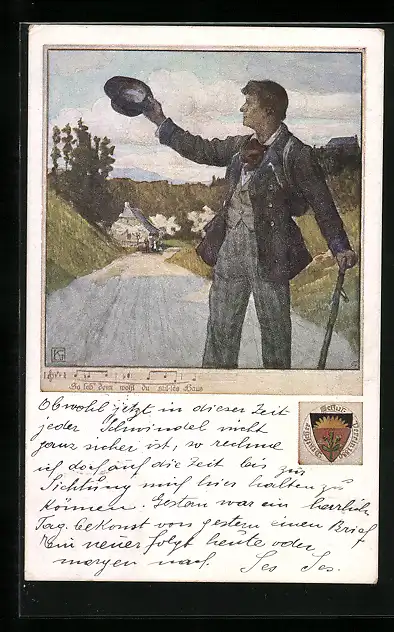 So leb' denn wohl du stilles Haus
Deutscher Schulverein
Obwohl jetzt in dieser Zeit
jeder Schwindel nicht
ganz sicher ist, so rechne
ich doch auf die Zeit bis zur
Sichtung mich hier halten zu
können. Gestern war ein herrlicher
Tag. bekomst von gestern einen Brief
Ein neuer folgt heute oder
morgen nach.